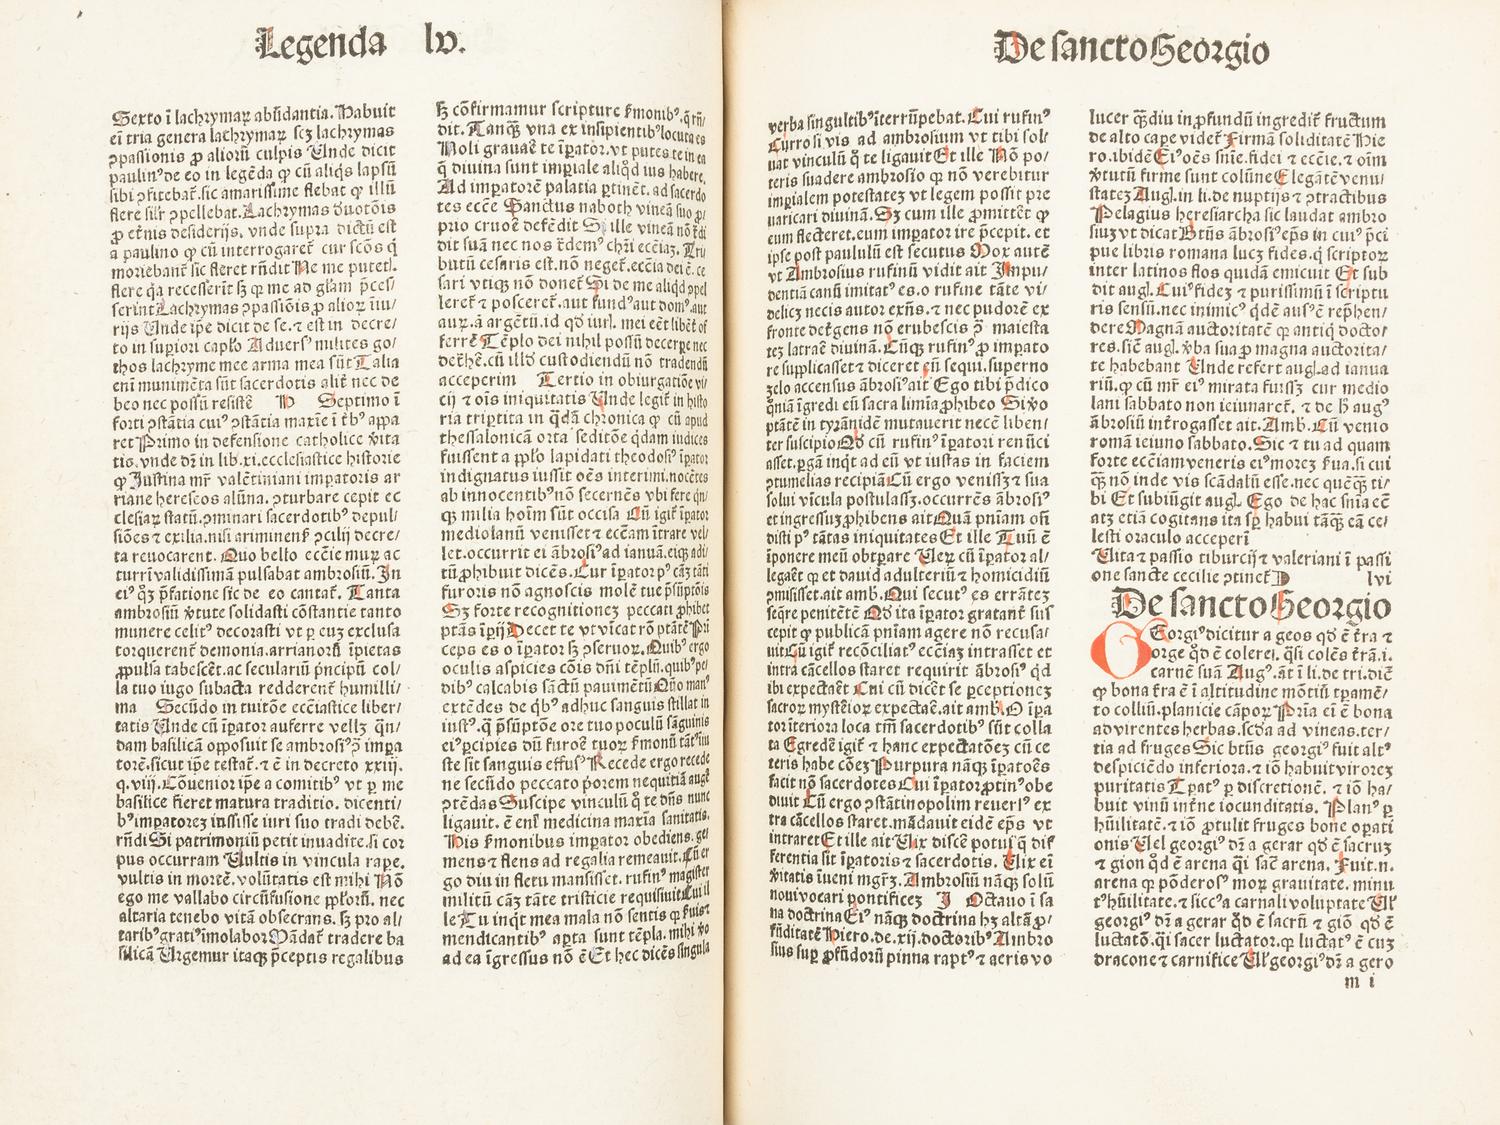 Legenda lv.
Sexto ī lachrymaꝝ abūdantia. Habuit
eī tria genera lachrymaꝝ scꝫ lachrymas
ꝯpassionis ꝓ alioꝝ culpis Unde dicit
paulinꝰ de eo in legēda ꝙ cū aliqs lapsū
sibi ꝯfitebat̄. sic amarissime flebat ꝙ illū
flere sil̄r ꝯpellebat. Lachrymas deuotōis
ꝓ et̄nis desiderijs. vnde supra dictū est
a paulino ꝙ cū interrogaret̄ cur scōs q̄
moriebant̄ sic fleret rn̄dit Ne me putetꝭ.
flere q̄a recesserīt sꝫ ꝙ me ad gl̄iam p̄ces/
serint Lachrymas ꝯpassiōis ꝓ alioꝝ īiu/
rijs Unde ip̄e dicit de se. ⁊ est in decre/
to in suꝑiori cap̄to Aduersꝰ milites go/
thos lachryme mee arma mea sūt Talia
enī munimēta sūt sacerdotis alit̄ nec de
beo nec possū resistē D Septimo ī
forti ꝯstātia cuiꝰ ꝯstātia maxīe ī t̄bꝰ appa
ret Primo in defensione catholice v̄ita
tis. vnde dr̄ in lib. xi. ecclesiastice historie
ꝙ Justina mr̄ valētiniani imꝑatoris ar
riane hereseos alūna. ꝑturbare cepit ec
clesiaꝝ statū. ꝯminari sacerdotibꝰ depul/
siōes ⁊ exilia. nisi ariminenẜ ꝯcilij decre/
ta reuocarent. Quo bello eccīe murꝰ ac
turrī validissimā pulsabat ambrosiū. In
eiꝰ qꝫ p̄fatione sic de eo cantat̄. Tanta
ambrosiū v̄tute solidasti cōstantie tanto
munere celitꝰ decorasti vt ꝑ eum exclusa
torquerent̄ demonia. arrianoꝝ īpietas
ꝓpulsa tabescēt. ac seculariū p̄ncipū col/
la tuo iugo subacta redderent̄ humilli/
ma Secūdo in tuitōe ecclesiastice liber/
tatis Unde cū īꝑator auferre vellꝫ qn̄/
dam basilicā opposuit se ambrosiꝰ ꝓ imꝑa
torē. sicut ip̄e testat̄. ⁊ ē in decreto xxiij.
q. viij. Cōuenior ip̄e a comitibꝰ vt ꝑ me
basilice fieret matura traditio. dicenti/
bꝰ imꝑatorem inssisse iuri suo tradi debē.
rn̄di Si patrimoniū petit inuadite. si cor
pus occurram Vultis in vincula rape.
vultis in mortē. volūtatis est mihi Nō
ego me vallabo circūfusione ppl̄orū. nec
altaria tenebo vitā obsecrans. sꝫ pro al/
taribꝰ gratiꝰ īmolabor Mādat̄ tradere ba
silicā Urgemur itaqꝫ p̄ceptis regalibus
sꝫ cōfirmamur scripture ẜmonibꝰ. q̄ rn̄/
dit. Tanqꝫ vna ex insipientibꝰ locuta es
Noli grauaē te īꝑator. vt putes te in ea
q̄ diuina sunt imꝑiale aliqd̄ ius habere.
Ad imꝑatorē palatia ꝑtinēt. ad sacerdo
tes eccē Sanctus naboth vineā suo ꝓ/
prio cruoē defēdit Si ille vineā nō t̄di
dit suā nec nos t̄demꝰ chr̄i eccīaꝫ. Tri
butū cesaris est. nō neget̄. eccīa dei ē. ce
sari vtiqꝫ nō donet̄ Si de me aliqd̄ ꝯpel
leret̄ ⁊ posceret̄. aut fundꝰ aut domꝰ. aut
auꝝ. ā argētū. id qd̄ iurꝭ. mei eēt libēt̄ of
ferrē Tēplo dei nihil possū decerpe nec
det̄hē. cū illd̄ custodiendū nō tradendū
acceperim Tertio in obiurgatiōe vi/
cij ⁊ oīs iniquitatis Unde legit̄ in histo
ria triꝑtita in q̄dā chronica ꝙ cū apud
thessalonicā orta seditōe q̄dam iudices
fuissent a pplo lapidati theodosiꝰ īꝑator
indignatus iussit oēs interimi. nocētes
ab innocentibꝰ nō secernēs vbi fere qn̄/
qꝫ milia hoīm sūt occisa Cū igit̄ īꝑator
mediolanū venisset ⁊ eccīam ītrare vel/
let. occurrit ei ābrosiꝰ ad ianuā. eiqꝫ adi/
tū ꝓhibuit dicēs. Cur īꝑator pꝰ cāꝫ tāti
furoris nō agnoscis molē tue p̄sūptōis
Sꝫ forte recognitionem peccati ꝓhibet
ptās īꝑij Decet te vt vīcat rō ptātē Prī
ceps es o īꝑator sꝫ ꝯseruoꝝ. Quibꝰ ergo
oculis aspicies cōis dn̄i tēplū. quibꝰ pe/
dibꝰ calcabis sāctū pauimētū Quō manꝰ
extēdes de qͥbꝰ adhuc sanguis stillat in
iustꝰ. q̄ p̄sūptōe ore tuo poculū sāguinis
eiꝰ ꝑcipies dū furoē tuoꝝ ẜmonū tātꝰ īiu
ste sit sanguis effusꝰ Recede ergo recede
ne secūdo peccato ṗorem nequitiā augē
ꝯtēdas Suscipe vinculū q̄ te dn̄s nunc
ligauit. ē enī medicina maxīa sanitatis.
His ẜmonibus imꝑator obediens. ge/
mens ⁊ flens ad regalia remeauit. Cū er
go diu in fletu mansisset. rufinꝰ magister
militū cāꝫ tāte tristicie requisiuit Cui il
le Tu inqt mea mala nō sentis ꝙ ẜuis ⁊
mendicantibꝰ aꝑta sunt tēpla. mihi v̄o
ad ea īgressus nō ē Et hec dicēs singula
De sancto Georgio
verba singultibꝰ īterrūpebat. Cui rufinꝰ
Curro si vis ad ambrosium vt tibi sol/
uat vinculū q̄ te ligauit Et ille Nō po/
teris suadere ambrosio ꝙ nō verebitur
imꝑialem potestatem vt legem possit pre
uaricari diuinā. Sꝫ cum ille ꝓmittēt ꝙ
eum flecteret. eum imꝑator ire p̄cepit. et
ipse post paululū est secutus Mox autē
vt Ambrosius rufinū vidit ait Impu/
dentiā canū imitatꝰ es. o rufine tāte vi/
delicꝫ necis autor exn̄s. ⁊ nec pudorē ex
fronte det̄gens nō erubescis ꝯ maiesta
tem latraē diuinā. Cūqꝫ rufinꝰ ꝓ imꝑato
re supplicasset ⁊ diceret eū sequi. superno
zelo accensus ābrosiꝰ ait Ego tibi p̄dico
qͥniā īgredi eū sacra limīa ꝓhibeo Si v̄o
ptātē in tyrānidē mutauerit necē liben/
ter suscipio Qd̄ cū rufinꝰ īꝑatori renūci
asset. ꝑgā inqt ad eū vt iustas in faciem
ꝯtumelias recipiā Cū ergo venissꝫ ⁊ sua
solui vīcula postulassꝫ. occurrēs ābrosiꝰ
et ingressuꝫ ꝓhibens ait Quā pn̄iam osī
disti pꝰ tātas iniquitates Et ille Tuū ē
īponere meū obtꝑare Ueꝝ cū īꝑator al/
legaēt ꝙ et dauid adulteriū ⁊ homicidiū
ꝯmisisset. ait amb. Qui secutꝰ es errātem
seq̄re penitētē Qd̄ ita īꝑator gratant̄ sus
cepit ꝙ publicā pn̄iam agere nō recusa/
uit Cū igit̄ recōciliatꝰ eccīam intrasset et
intra cācellos staret requirit ābrosiꝰ qd̄
ibi expectaēt Cui cū dicēt se ꝑceptionem
sacroꝝ mysterioꝝ expectaē. ait amb. O īꝑa
tor īteriora loca tm̄ sacerdotibꝰ sūt colla
ta Egredē igit̄ ⁊ hanc expectatōem cū ce
teris habe cōem Purpura nāqꝫ īꝑatoēs
facit nō sacerdotes Cui īꝑator ꝓtinꝰ obe
diuit Cū ergo ꝯstātinopolim reuersꝰ ex
tra cācellos staret. mādauit eidē ep̄s vt
intraret Et ille ait Vix discē potui qͥ dif
ferentia sit īꝑatoris ⁊ sacerdotis. Vix eī
v̄itatis īueni mgr̄ꝫ. Ambrosiū nāqꝫ solū
noui vocari pontificem J Octauo ī sa
na doctrina Eiꝰ nāqꝫ doctrina hꝫ altā ꝓ/
fūditatē Hiero. de. xij. doctoribꝰ Ambro
sius suꝑ ꝓfūdorū pinna raptꝰ ⁊ aeris vo
lucer qꝫdiu in ꝓfundū ingredit̄ fructum
de alto cape videt̄ Firmā soliditatē Hie
ro. ibidē Eiꝰ oēs snīe. fidei ⁊ eccīe. ⁊ oīm
v̄tutū firme sunt colūne Elegātē venu/
statem Augꝭ. in li. de nuptijs ⁊ ꝯtractibus
Pelagius heresiarcha sic laudat ambro
siuꝫ vt dicat Bt̄ūs ābrosiꝰ ep̄s in cuiꝰ p̄ci
pue libris romana lucꝫ fides. q̄ scriptoꝝ
inter latinos flos quidā emicuit Et sub
dit augꝭ. Cuiꝰ fidem ⁊ purissimū ī scriptu
ris sensū. nec inimicꝰ qͥdē ausꝰ ē rep̄hen/
dere Magnā auctoritatē ꝙ antiqͥ docto/
res. sic̄ augꝭ. v̄ba sua ꝓ magna auctorita/
te habebant Unde refert augꝭ. ad ianua
riū. ꝙ cū mr̄ eiꝰ mirata fuissꝫ cur medio
lani sabbato non ieiunaret̄. ⁊ de h̄ augꝰ
ābrosiū int̄rogasset ait. Amb. Cū venio
romā ieiuno sabbato. Sic ⁊ tu ad quam
forte eccīam veneris eiꝰ morem ẜua. si cui
qꝫ nō inde vis scādalū esse. nec quēqꝫ ti/
bi Et subiūgit augꝭ. Ego de hac snīa eē
atꝫ etiā cogitans ita sꝑ habui tāqꝫ eā ce/
lesti oraculo acceperī
Uita ⁊ passio tiburcij ⁊ valeriani ī passi
one sancte cecilie ꝯtinet̄ D lvi
De sancto Georgio
GEorgiꝰ dicitur a geos qd̄ ē t̄ra ⁊
orge qd̄ ē colere. q̄si colēs t̄rā. i.
carnē suā Augꝰ. āt ī li. de tri. diē
ꝙ bona t̄ra ē ī altitudine mōtiū tꝑamē/
to colliū. planicie cāpoꝝ Pria eī ē bona
ad virentes herbas. scd̄a ad vineas. ter/
tia ad fruges Sic bt̄us georgiꝰ fuit altꝰ
despiciēdo inferiora. ⁊ iō habuit virorem
puritatis Tꝑatꝰ ꝑ discretionē. ⁊ iō ha/
buit vinū int̄ne iocunditatis. Planꝰ ꝑ
hūilitatē. ⁊ iō ꝓtulit fruges bone oꝑati
onis Vel georgiꝰ dr̄ a gerar qd̄ ē sacrum
⁊ gion qd̄ ē arena qͥ sac̄ arena. Fuit. n.
arena qꝛ pōderosꝰ moꝝ grauitate. minu
tꝰ hūilitate. ⁊ siccꝰ a carnali voluptate Vl̄
georgiꝰ dr̄ a gerar qd̄ ē sacrū ⁊ giō qd̄ ē
luctatō. qͥ si sacer luctator. qꝛ luctatꝰ ē cum
dracone ⁊ carnifice Vl̄ georgiꝰ dr̄ a gero
m i